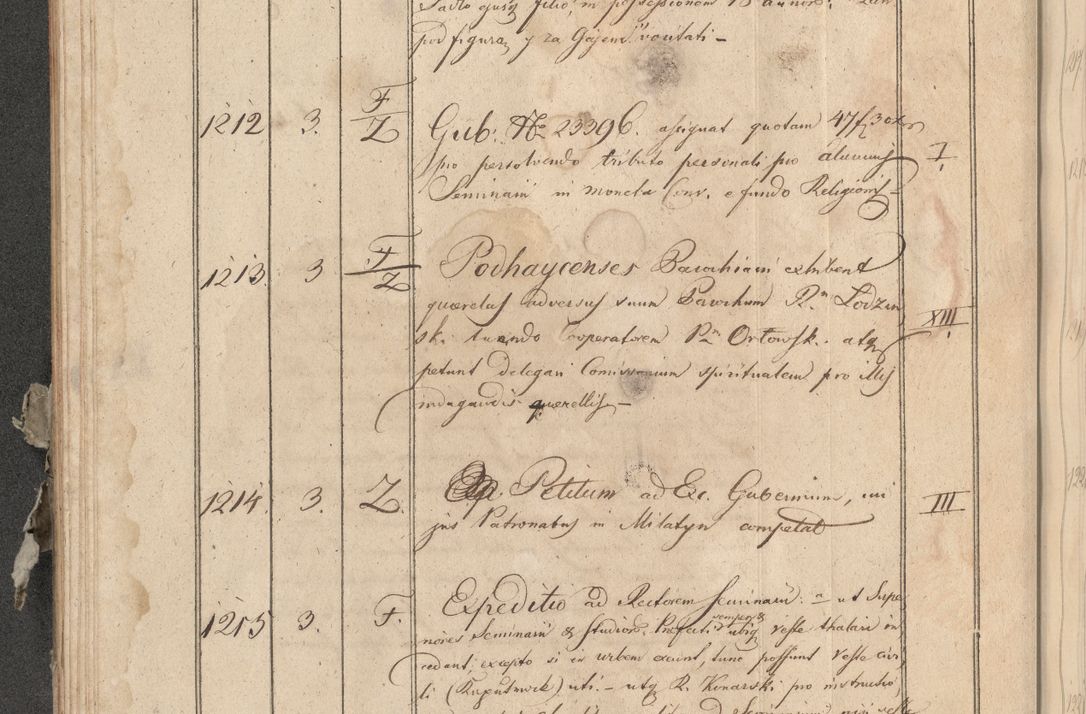 Sadlo ejus filio, in possessionem 18 annor:
pod figurą y za Gajem vocitati –
1212 3. F/Z Gub: No 23396. assignat quotam 47 f 3 oxr
pro persolvendo tributo personali pro alumnis I.
Seminarii in moneta Conv. e fundo Religionis –
1213. 3 F/Z Podhaycenses Parochiani exhibent
querelas adversus suum Parochum Rm Lodzin XIII.
ski tuendo Cooperatorem Rm Orłowsk. atq
petunt delegari Comissarium spiritualem pro illis
indagandis querellis –
1214. 3. Z. Petitum ad Exc. Gubernium, cui III
jus Patronatus in Milatyn competat
1215 3. F. Expeditio ad Rectorem Seminarii: a ut Supe
semper &
riores Seminarii & studior. Prefecti ubiq veste thalari in
cedant, excepto si ex urbem exeunt, tunc possunt veste civi
li (Kaputrock) uti. – utq R. Konarski pro instructio